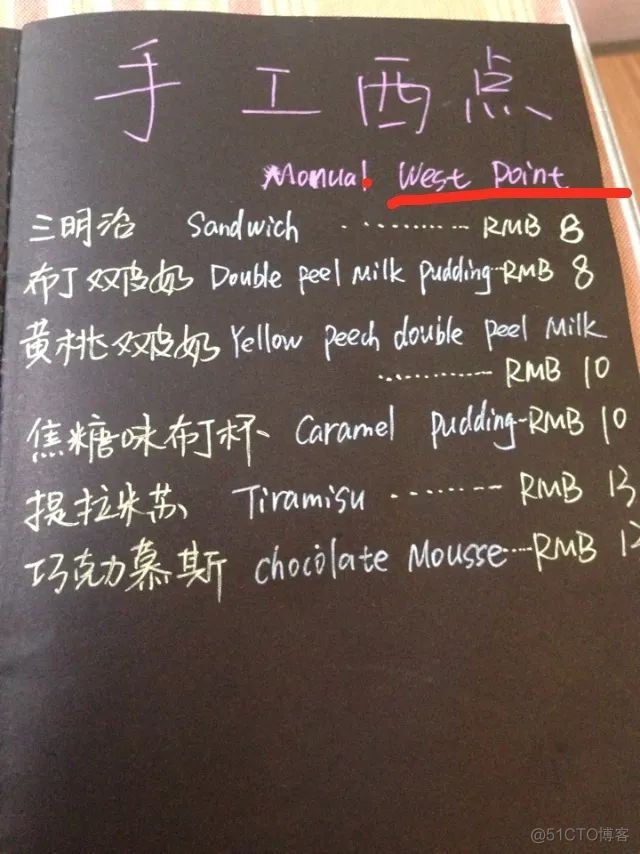 手工西点
Manual West Point
三明治 Sandwich ·········· RMB 8
布丁双皮奶 Double peel Milk pudding--RMB 8
黄桃双皮奶 Yellow peech double peel Milk
············ RMB 10
焦糖味布丁杯、 Caramel pudding-RMB 10
提拉米苏、 Tiramisu -------- RMB 13
巧克力慕斯 chocolate Mousse----RMB
@51CTO博客